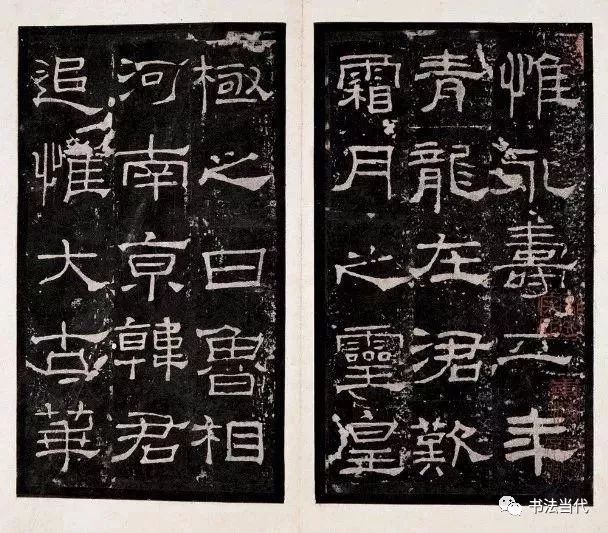 惟永壽二年
青龍在涒歎
霜月之靈皇
極之日魯相
河南京韓君
追惟大古華
书法当代